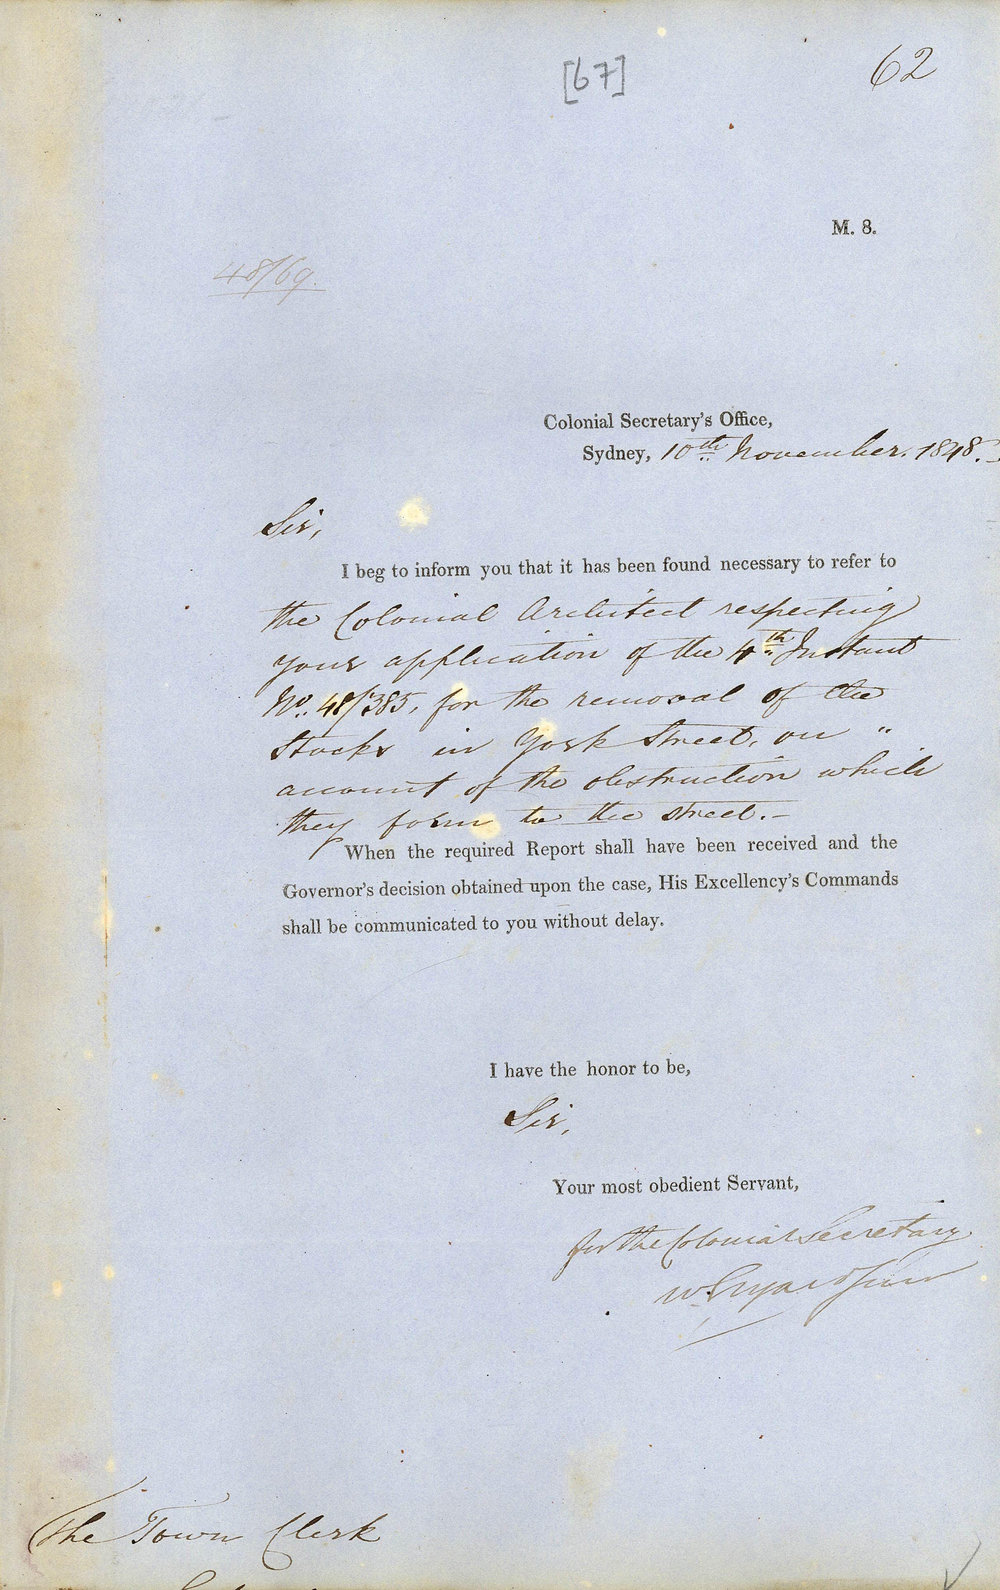 [67]
62
M. 8.
48/69.
Colonial Secretary's Office,
Sydney, 10th November. 1848.
Sir,
I beg to inform you that it has been found necessary to refer to
the Colonial Architect respecting
your application of the 4th Instant
No. 48/385, for the removal of the
Stocks in York Street, on "
account of the obstruction which
they form to the street.-
When the required Report shall have been received and the
Governor's decision obtained upon the case, His Excellency's Commands
shall be communicated to you without delay.
I have the honor to be,
Sir,
Your most obedient Servant,
for the Colonial Secretary
W Elyard Junr
The Town Clerk